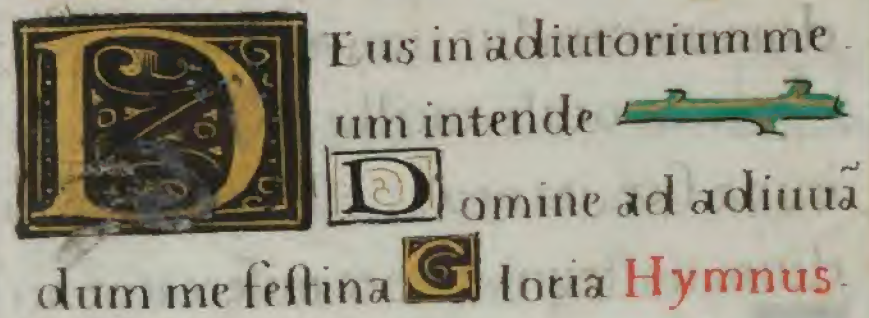 DEus in adiutorium me
um intende
Domine ad adiuuã
dum me festina Gloria Hymnus.